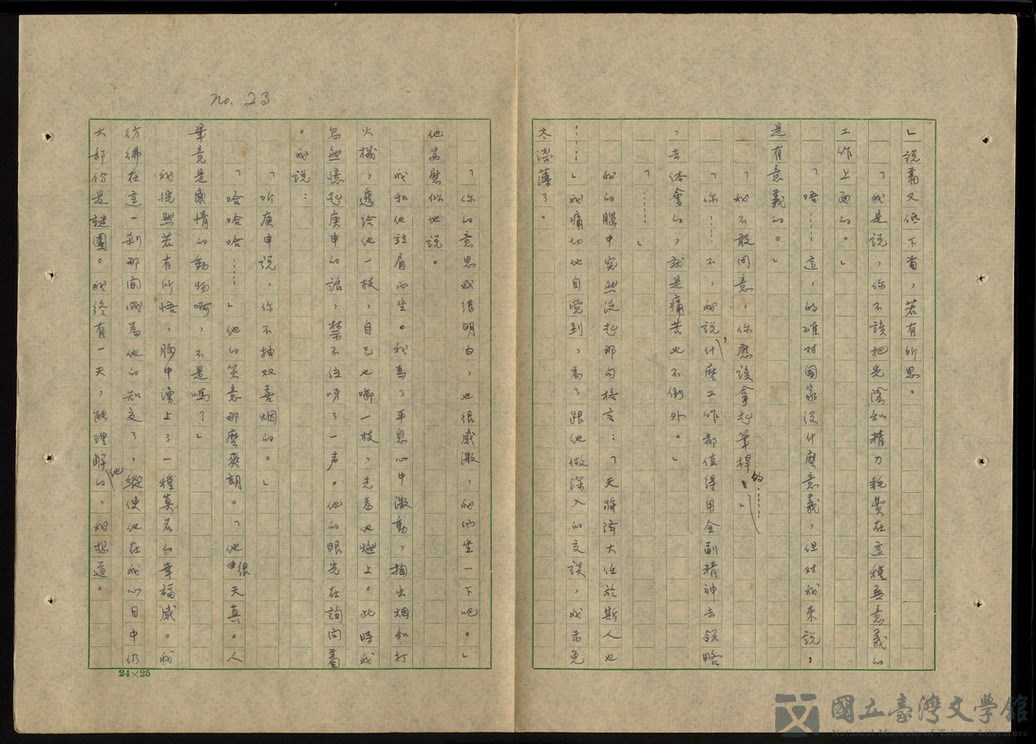 」說着又低下首，若有所思。
「我是說，你不該把光陰和精力耗費在這種無意義的
工作上面的。」
「唔……這，的確对國家沒什麽意義，但对我來說，
是有意義的。」
「我不敢同意，你應該拿起筆桿的……」
「你……不，我說，什麽工作都值得用全副精神去領略
，去体會的，就是痛苦也不例外。」
「……」
我的腦中突然泛起那句格言：「天將降大任於斯人也
……」我痛切地自覺到，為了跟他做深入的交談，我未免
太淺薄了。
no. 23
「你的意思我很明白，也很感激，我們坐一下吧。」
他安慰似地說。
我和他並肩而坐。我為了平息心中激動，掏出烟和打
火機，遞給他一枝，自己也啣一枝，先為他燃上。此時我
忽然憶起庚申的話，禁不住呀了一声。他的眼光在詢問着
。我說：
「听庚申說，你不抽双喜烟的。」
「哈哈哈……」他的笑意那麽爽朗。「他很天真。人
畢竟是感情的動物啊，不是嗎？」
我恍然若有所悟，胸中湧上了一種莫名的幸福感。我
彷彿在這一刹那間成為他的知交了，縱使他在我心目中仍
大部份是謎團。我終有一天，能理解他的，我想道。
24×25
國立臺灣文學館
National Museum of Taiwan Literature